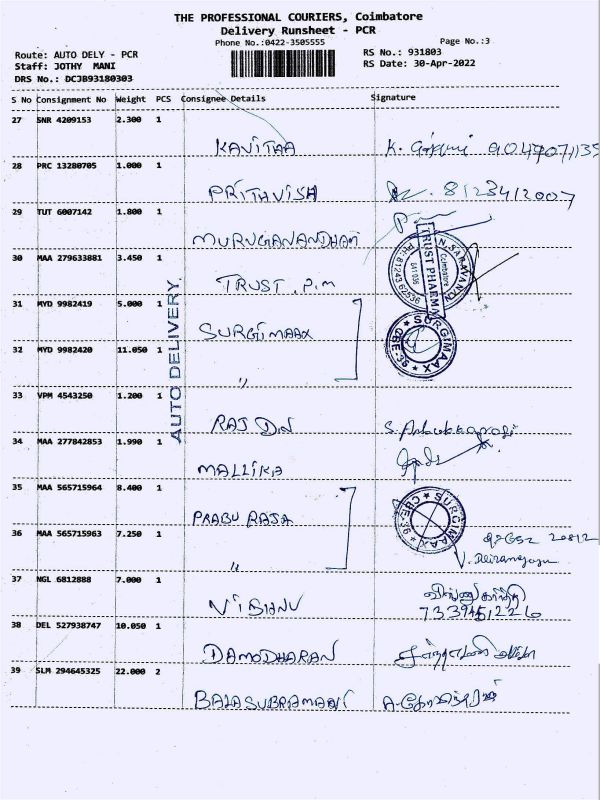 THE PROFESSIONAL COURIERS, Coimbatore
Delivery Runsheet - PCR
Phone No.:0422-3505555
Page No.:3
Route: AUTO DELY - PCR
RS No.: 931803
Staff: JOTHY MANI
RS Date: 30-Apr-2022
DRS No.: DCJB93180303
S No Consignment No Weight PCS Consignee Details Signature
27 SNR 4209153 2.300 1
KAVITAA K.
28 PRC 13280705 1.000 1
PRITHVISH 8123412007
29 TUT 6007142 1.800 1
MURUGANANDHAM
30 MAA 279633881 3.450 1
TRUST. P.m
N. SARAVANA
TRUST PHARMA
Coimbatore
641 036
PH: 81243 62536
31 MYD 9982419 5.000 1
SURGIMAAX
SURGIMAAX
CBE-36
32 MYD 9982420 11.050 1
〃
AUTO DELIVERY.
33 VPM 4543250 1.200 1
RAJ D.N S.
34 MAA 277842853 1.990 1
MALLIKA
35 MAA 565715964 8.400 1
PRABU RAJA
SURGIMAAX
CBE-36
36 MAA 565715963 7.250 1
〃
37 NGL 6812888 7.000 1
VISHNU
38 DEL 527938747 10.050 1
DAMODHARAN
39 SLM 294645325 22.000 2
BALASUBRAMANI